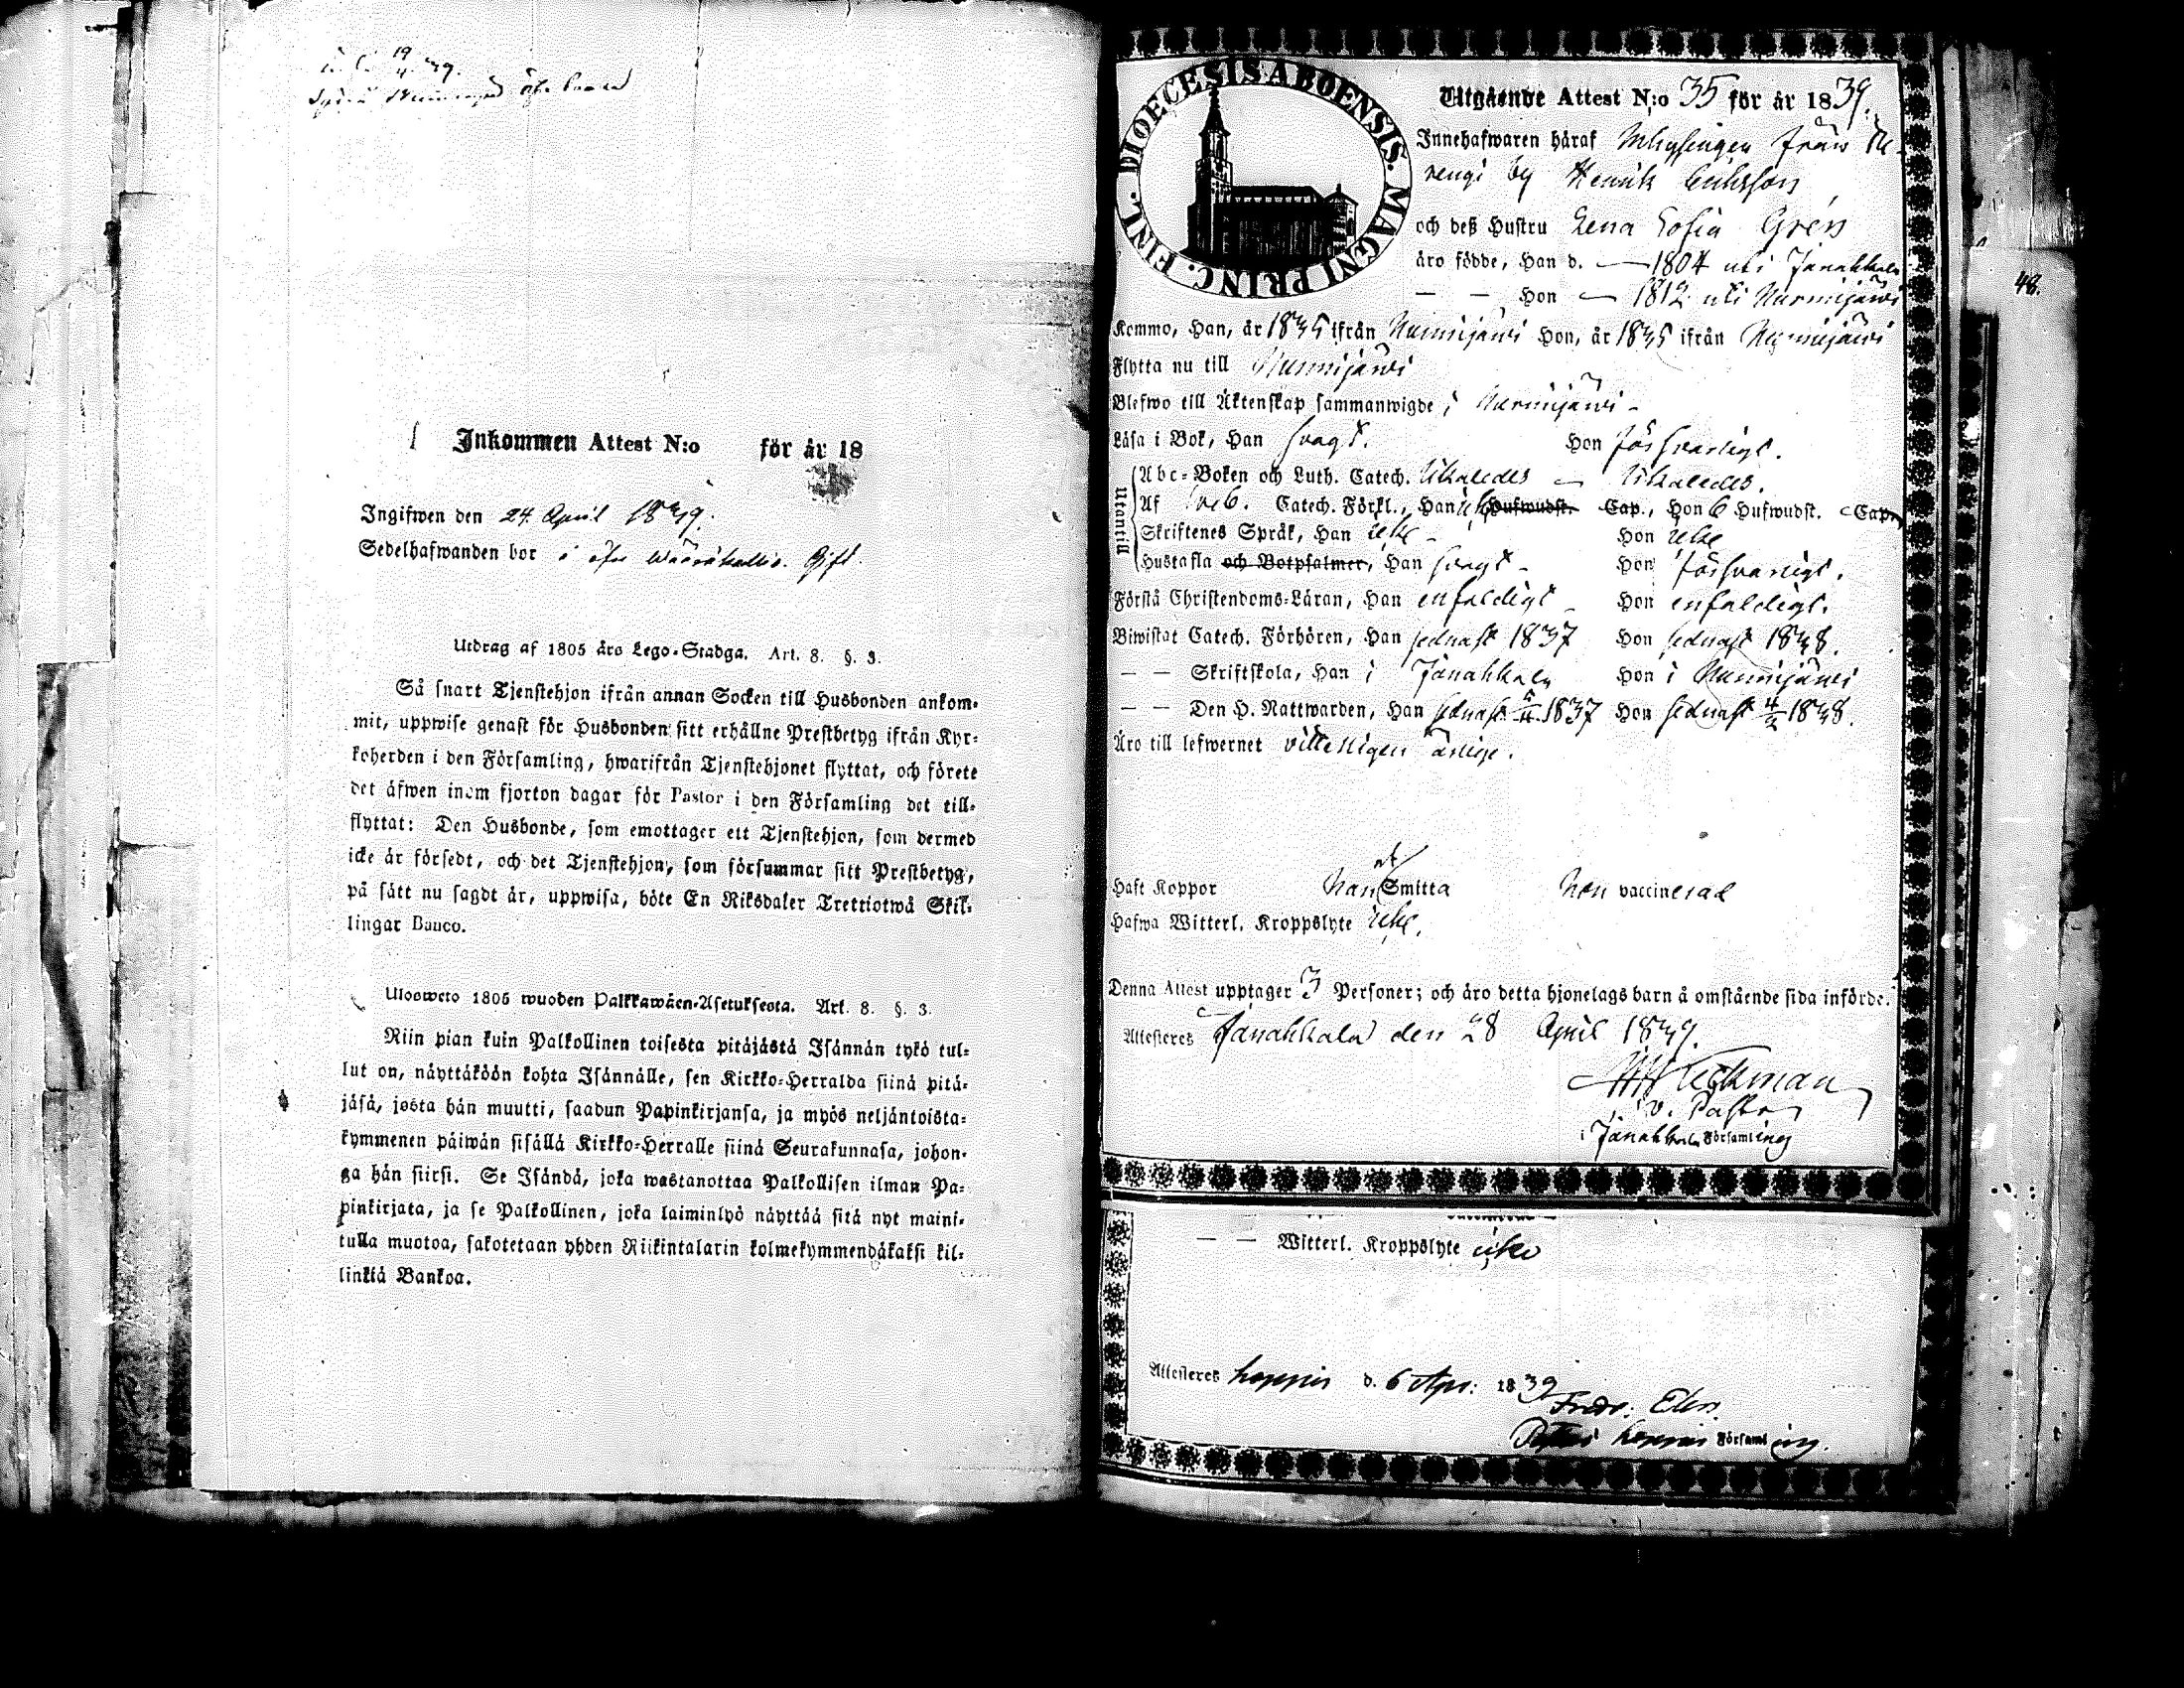 19
Inkommen Attest N:o för år 18
Ingifwen den 24. April 1839.
Sedelhafwanden bor i öfre
Utdrag af 1805 års Lego-Stadga. Art. 8. §. 3.
Så snart Tjenstehjon ifrån annan Socken till Husbonden ankom-
mit, uppwise genast för Husbonden sitt erhållne Prestbetyg ifrån Kyr-
koherden i den Församling, hwarifrån Tjenstehjonet flyttat, och förete
det äfwen inom fjorton dagar för Pastor i den Församling det till-
flyttat: Den Husbonde, som emottager ett Tjenstehjon, som dermed
icke är försedt, och det Tjenstehjon, som försummar sitt Prestbetyg,
på sätt nu sagdt är, uppwisa, böte En Riksdaler Trettiotwå Skil-
lingar Banco.
Ulosweto 1805 wuoden Palkkawäen-Asetuksesta. Art. 8. §. 3.
Niin pian kuin Palkollinen toisesta pitäjästä Isännän tykö tul-
lut on, näyttäköön kohta Isännälle, sen Kirkko-Herralda siinä pitä-
jäsä, josta hän muutti, saadun Papinkirjansa, ja myös neljäntoista-
kymmenen päiwän sisällä Kirkko-Herralle siinä Seurakunnasa, johon-
ga hän siirsi. Se Isändä, joka wastanottaa Palkollisen ilman Pa-
pinkirjata, ja se Palkollinen, joka laiminlyö näyttää sitä nyt maini-
tulla muotoa, sakotetaan yhden Riikintalarin kolmekymmendäkaksi kil-
linkiä Bankoa.
DIOECESIS ABOENSIS. MAGNI PRINC. FINL.
Utgående Attest N:o 35 för år 1839.
Innehafwaren häraf Inhysingen från
by Henrik Eriksson
och deß Hustru Lena Sofia Grén
äro födde, Han d. — 1804 uti Janakkala
— — Hon — 1812 uti Nurmijärvi
Kommo, Han, år 1835 ifrån Nurmijärvi Hon, år 1835 ifrån Nurmijärvi
Flytta nu till Nurmijärvi
Blefwo till Äktenskap sammanwigde i Nurmijärvi -
Läsa i Bok, Han svagt. Hon försvarligt.
Utantill
Abc-Boken och Luth. Catech. likaledes — likaledes.
Af Catech. Förkl., Han Hufwudst. Cap., Hon 6 Hufwudst. Cap.
Skriftenes Språk, Han icke - Hon icke
Hustafla och Botpsalmer, Han svagt - Hon försvarligt.
Förstå Christendoms-Läran, Han enfaldigt - Hon enfaldigt.
Biwistat Catech. Förhören, Han sednast 1837 Hon sednast 1838.
— — Skriftskola, Han i Janakkala Hon i Nurmijärvi
— — Den H. Nattwarden, Han sednast 1837 Hon sednast 1838.
Äro till lefwernet ärlige.
Haft Koppor Han Smitta Hon vaccinerad
Hafwa Witterl. Kroppslyte icke.
Denna Attest upptager 3 Personer; och äro detta hjonelags barn å omstående sida införde.
Attesteras Janakkala den 28 April 1839.
v. Pastor
i Janakkala Församling
48.
— — Witterl. Kroppslyte icke
Attesteras Loppis d. 6 Apr: 1839
Fredr.
Loppis Församling.